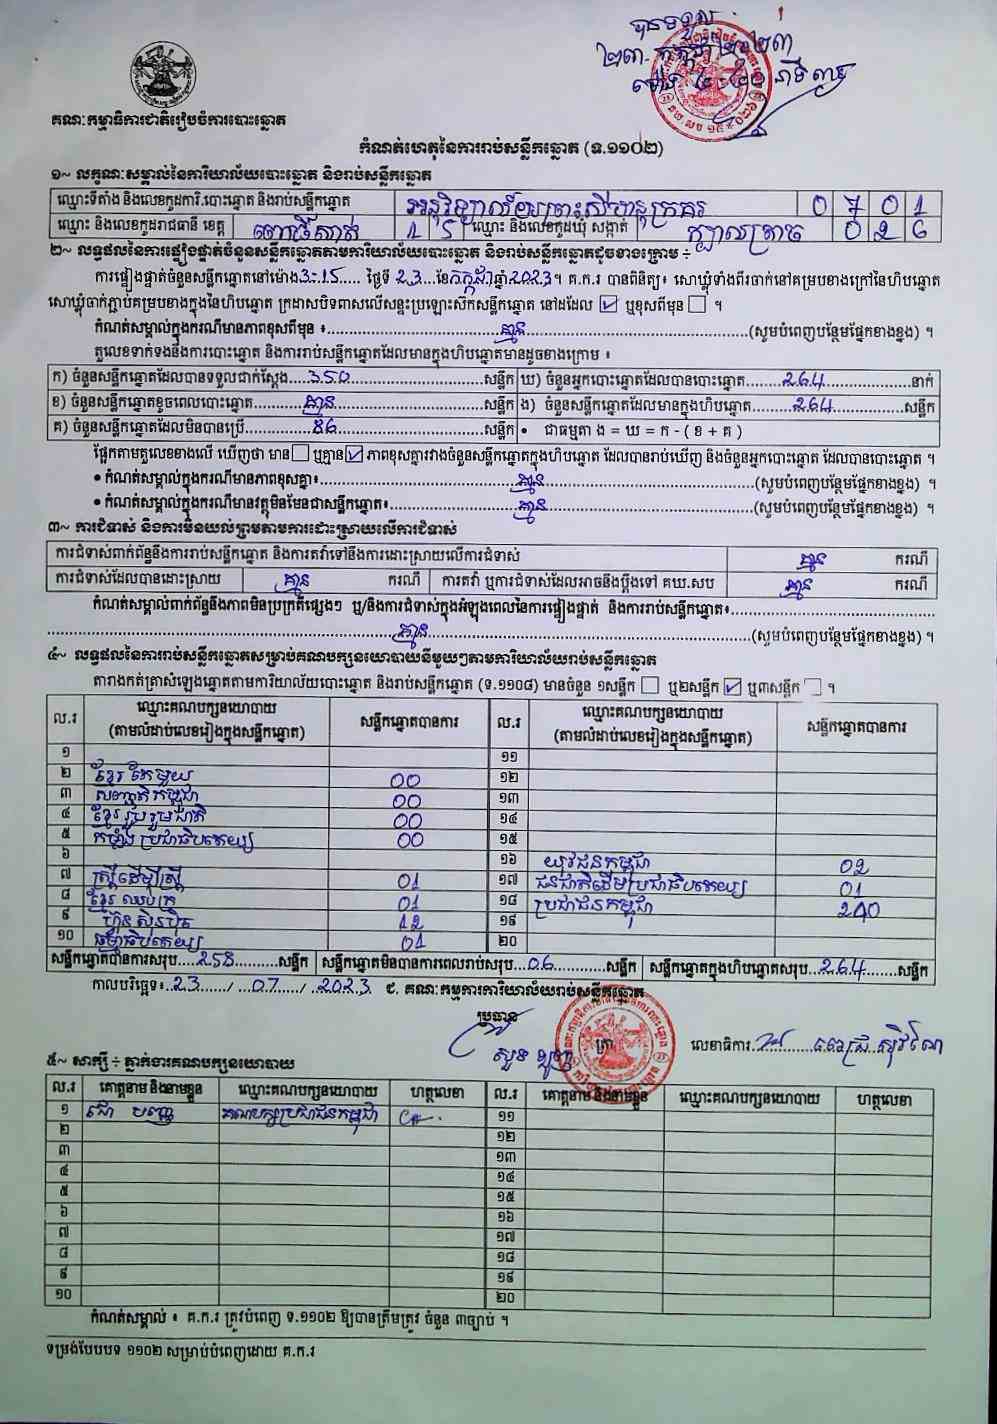 បានទទួល
២៣ កក្កដា ២០២៣
គណៈកម្មាធិការជាតិរៀបចំការបោះឆ្នោត
កំណត់ហេតុនៃការរាប់សន្លឹកឆ្នោត (ទ.១១០២)
១~ លក្ខណៈសម្គាល់នៃការិយាល័យបោះឆ្នោត និងរាប់សន្លឹកឆ្នោត
ឈ្មោះទីតាំង និងលេខកូដការិ.បោះឆ្នោត និងរាប់សន្លឹកឆ្នោត អនុវិទ្យាល័យព្រះស៊ីហនុក្រគរ 0 7 0 1
ឈ្មោះ និងលេខកូដរាជធានី ខេត្ត ពោធិ៍សាត់ 1 5 ឈ្មោះ និងលេខកូដឃុំ សង្កាត់ 0 2 6
២~ លទ្ធផលនៃការផ្ទៀងផ្ទាត់ចំនួនសន្លឹកឆ្នោតតាមការិយាល័យបោះឆ្នោត និងរាប់សន្លឹកឆ្នោតដូចខាងក្រោម ÷
ការផ្ទៀងផ្ទាត់ចំនួនសន្លឹកឆ្នោតនៅម៉ោង 3:15 ថ្ងៃទី 23 ខែ កក្កដា ឆ្នាំ 2023។ គ.ក.រ បានពិនិត្យ៖ សោឃ្លុំទាំងពីរចាក់នៅគម្របខាងក្រៅនៃហិបឆ្នោត
សោឃ្លុំចាក់ភ្ជាប់គម្របខាងក្នុងនៃហិបឆ្នោត ក្រដាសបិទពាសលើសន្ទះប្រឡោះសឹកសន្លឹកឆ្នោត នៅដដែល ☑ ឬខុសពីមុន ☐ ។
កំណត់សម្គាល់ក្នុងករណីមានភាពខុសពីមុន ៖ គ្មាន (សូមបំពេញបន្ថែមផ្នែកខាងខ្នង) ។
តួលេខទាក់ទងនឹងការបោះឆ្នោត និងការរាប់សន្លឹកឆ្នោតដែលមានក្នុងហិបឆ្នោតមានដូចខាងក្រោម ៖
ក) ចំនួនសន្លឹកឆ្នោតដែលបានទទួលជាក់ស្តែង 350 សន្លឹក ឃ) ចំនួនអ្នកបោះឆ្នោតដែលបានបោះឆ្នោត 264 នាក់
ខ) ចំនួនសន្លឹកឆ្នោតខូចពេលបោះឆ្នោត គ្មាន សន្លឹក ង) ចំនួនសន្លឹកឆ្នោតដែលមានក្នុងហិបឆ្នោត 264 សន្លឹក
គ) ចំនួនសន្លឹកឆ្នោតដែលមិនបានប្រើ 86 សន្លឹក • ជាធម្មតា ង = ឃ = ក - ( ខ + គ )
ផ្អែកតាមតួលេខខាងលើ ឃើញថា មាន ☐ ឬគ្មាន ☑ ភាពខុសគ្នារវាងចំនួនសន្លឹកឆ្នោតក្នុងហិបឆ្នោត ដែលបានរាប់ឃើញ និងចំនួនអ្នកបោះឆ្នោត ដែលបានបោះឆ្នោត ។
• កំណត់សម្គាល់ក្នុងករណីមានភាពខុសគ្នា៖ គ្មាន (សូមបំពេញបន្ថែមផ្នែកខាងខ្នង) ។
• កំណត់សម្គាល់ក្នុងករណីមានវត្ថុមិនមែនជាសន្លឹកឆ្នោត៖ គ្មាន (សូមបំពេញបន្ថែមផ្នែកខាងខ្នង) ។
៣~ ការជំទាស់ និងការមិនយល់ព្រមតាមការដោះស្រាយលើការជំទាស់
ការជំទាស់ពាក់ព័ន្ធនឹងការរាប់សន្លឹកឆ្នោត និងការតវ៉ាទៅនឹងការដោះស្រាយលើការជំទាស់ គ្មាន ករណី
ការជំទាស់ដែលបានដោះស្រាយ គ្មាន ករណី ការតវ៉ា ឬការជំទាស់ដែលអាចនឹងប្តឹងទៅ គឃ.សប គ្មាន ករណី
កំណត់សម្គាល់ពាក់ព័ន្ធនឹងភាពមិនប្រក្រតីផ្សេងៗ ឬ/និងការជំទាស់ក្នុងអំឡុងពេលនៃការផ្ទៀងផ្ទាត់ និងការរាប់សន្លឹកឆ្នោត៖
គ្មាន (សូមបំពេញបន្ថែមផ្នែកខាងខ្នង) ។
៤~ លទ្ធផលនៃការរាប់សន្លឹកឆ្នោតសម្រាប់គណបក្សនយោបាយនីមួយៗតាមការិយាល័យរាប់សន្លឹកឆ្នោត
តារាងកត់ត្រាសំឡេងឆ្នោតតាមការិយាល័យបោះឆ្នោត និងរាប់សន្លឹកឆ្នោត (ទ.១១០៨) មានចំនួន ១សន្លឹក ☐ ឬ២សន្លឹក ☑ ឬ៣សន្លឹក ☐ ។
ល.រ ឈ្មោះគណបក្សនយោបាយ (តាមលំដាប់លេខរៀងក្នុងសន្លឹកឆ្នោត) សន្លឹកឆ្នោតបានការ ល.រ ឈ្មោះគណបក្សនយោបាយ (តាមលំដាប់លេខរៀងក្នុងសន្លឹកឆ្នោត) សន្លឹកឆ្នោតបានការ
១ ១១
២ ខ្មែរតែមួយ 00 ១២
៣ សញ្ជាតិកម្ពុជា 00 ១៣
៤ ខ្មែររួបរួមជាតិ 00 ១៤
៥ កម្លាំងប្រជាធិបតេយ្យ 00 ១៥
៦ ១៦ យុវជនកម្ពុជា 02
៧ ស្ត្រីដើម្បីស្ត្រី 01 ១៧ ជនជាតិដើមប្រជាធិបតេយ្យ 01
៨ ខ្មែរឈប់ក្រ 01 ១៨ ប្រជាជនកម្ពុជា 240
៩ ហ៊្វុនស៊ិនប៉ិច 12 ១៩
១០ ធម្មាធិបតេយ្យ 01 ២០
សន្លឹកឆ្នោតបានការសរុប 258 សន្លឹក សន្លឹកឆ្នោតមិនបានការពេលរាប់សរុប 06 សន្លឹក សន្លឹកឆ្នោតក្នុងហិបឆ្នោតសរុប 264 សន្លឹក
កាលបរិច្ឆេទ៖ 23 / 07 / 2023 ជ. គណៈកម្មការការិយាល័យរាប់សន្លឹកឆ្នោត
ប្រធាន
ត្រា លេខាធិការ
៥~ សាក្សី ÷ ភ្នាក់ងារគណបក្សនយោបាយ
ល.រ គោត្តនាម និងនាមខ្លួន ឈ្មោះគណបក្សនយោបាយ ហត្ថលេខា ល.រ គោត្តនាម និងនាមខ្លួន ឈ្មោះគណបក្សនយោបាយ ហត្ថលេខា
១ គណបក្សប្រជាជនកម្ពុជា ១១
២ ១២
៣ ១៣
៤ ១៤
៥ ១៥
៦ ១៦
៧ ១៧
៨ ១៨
៩ ១៩
១០ ២០
កំណត់សម្គាល់ ៖ គ.ក.រ ត្រូវបំពេញ ទ.១១០២ ឱ្យបានត្រឹមត្រូវ ចំនួន ៣ច្បាប់ ។
ទម្រង់បែបបទ ១១០២ សម្រាប់បំពេញដោយ គ.ក.រ